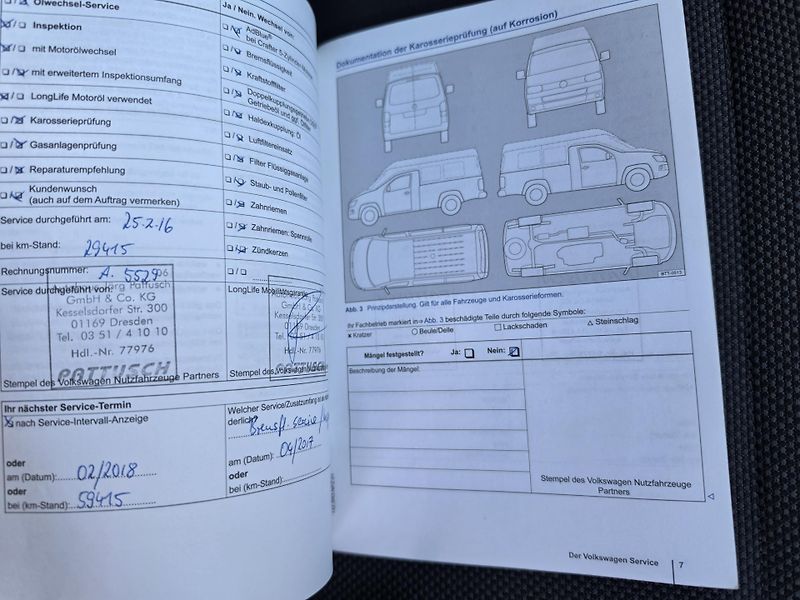 Ölwechsel-Service
Inspektion
mit Motorölwechsel
mit erweitertem Inspektionsumfang
LongLife Motoröl verwendet
Karosserieprüfung
Gasanlagenprüfung
Reparaturempfehlung
Kundenwunsch
(auch auf dem Auftrag vermerken)
Service durchgeführt am: 25.2.16
bei km-Stand: 29415
Rechnungsnummer: A.
Service durchgeführt von:
GmbH & Co. KG
Kesselsdorfer Str. 300
01169 Dresden
Tel. 03 51 / 4 10 10
Hdl.-Nr. 77976
PATTUSCH
Stempel des Volkswagen Nutzfahrzeuge Partners
Ihr nächster Service-Termin
nach Service-Intervall-Anzeige
oder
am (Datum): 02/2018
oder
bei (km-Stand): 59415
Ja / Nein, Wechsel von:
AdBlue®
bei Crafter 5-Zylinder
Bremsflüssigkeit
Kraftstofffilter
Doppelkupplungsgetriebe
Getriebeöl und ggf.
Haldexkupplung: Öl
Luftfiltereinsatz
Filter Flüssiggasanlage
Staub- und Pollenfilter
Zahnriemen
Zahnriemen: Spannrolle
Zündkerzen
LongLife
GmbH & Co. KG
01169 Dresden
Hdl.-Nr. 77976
Stempel des
Welcher Service/Zusatzumfang
derlich
am (Datum): 04/2017
oder
bei (km-Stand):
Dokumentation der Karosserieprüfung (auf Korrosion)
BTT-0513
Abb. 3 Prinzipdarstellung. Gilt für alle Fahrzeuge und Karosserieformen.
Ihr Fachbetrieb markiert in ⇒ Abb. 3 beschädigte Teile durch folgende Symbole:
x Kratzer O Beule/Delle □ Lackschaden △ Steinschlag
Mängel festgestellt? Ja: Nein:
Beschreibung der Mängel:
Stempel des Volkswagen Nutzfahrzeuge
Partners
Der Volkswagen Service 7